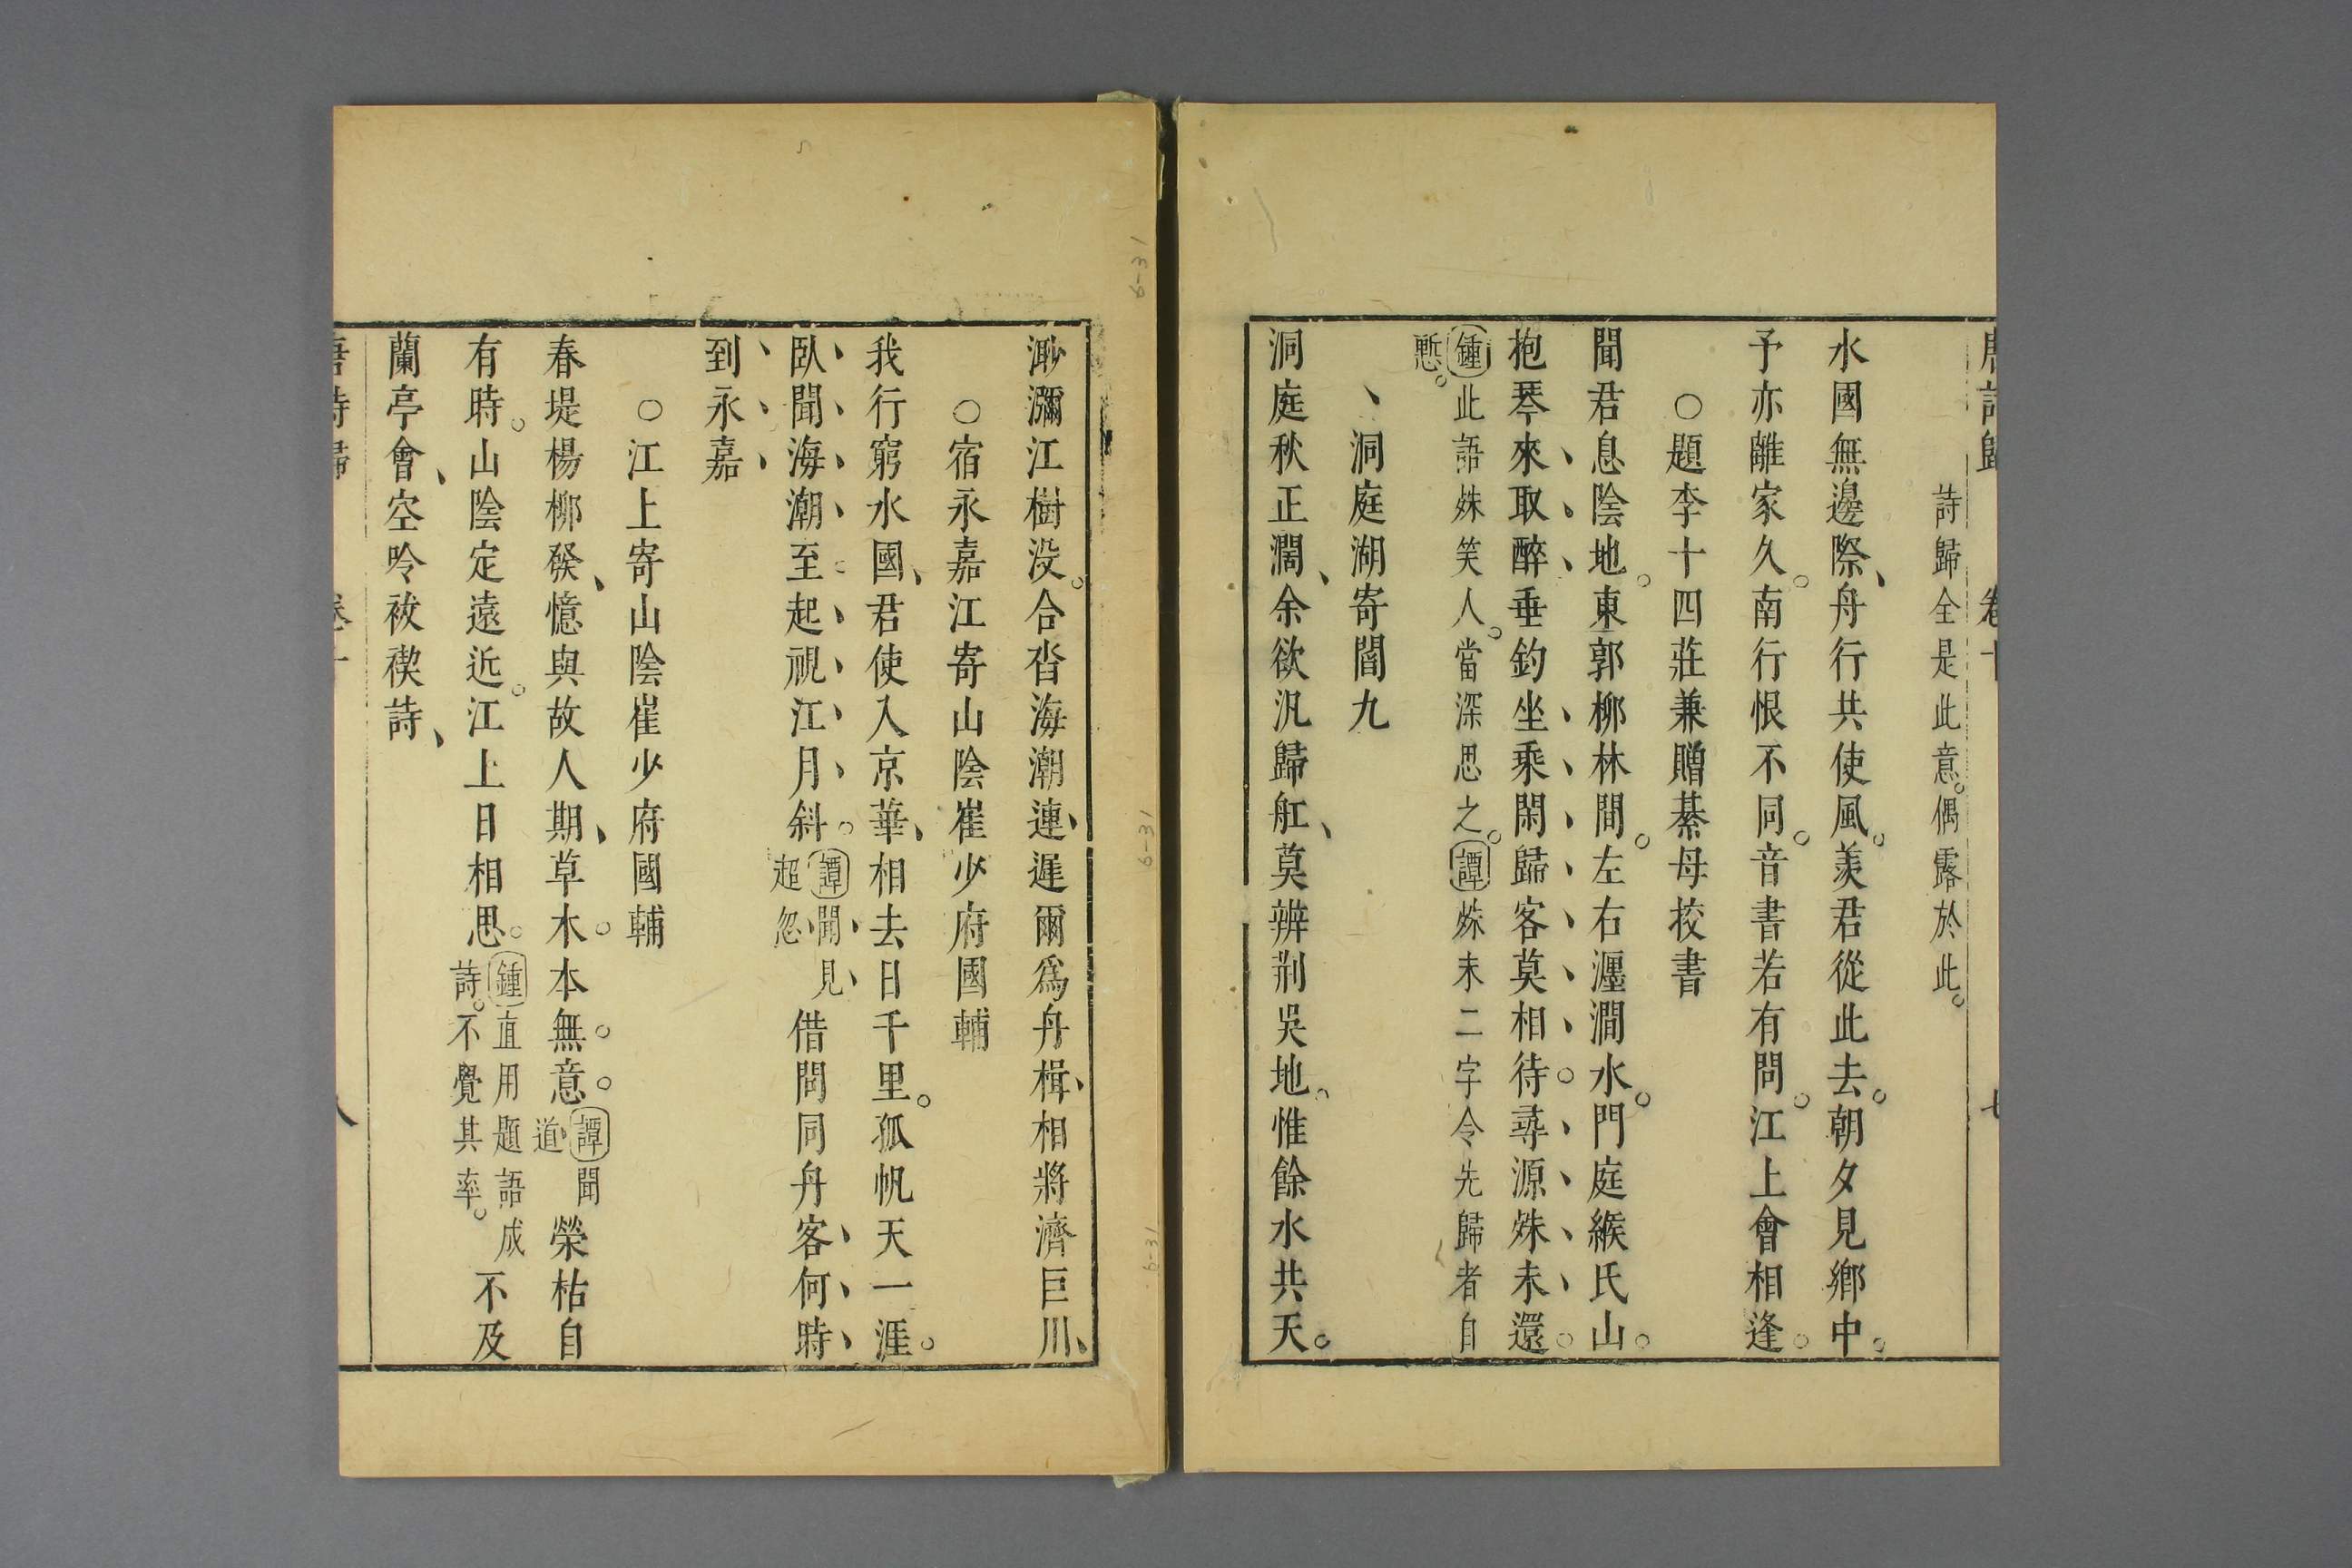 唐詩歸 卷十 七
詩歸全是此意。偶露於此。
水國無邊際、舟行共使風。羨君從此去。朝夕見鄉中。
予亦離家久。南行恨不同。音書若有問。江上會相逢。
○題李十四莊兼贈綦毋挍書
聞君息陰地。東郭柳林間。左右瀍澗水。門庭緱氏山。
抱琴來取醉垂釣坐乘閑歸客莫相待尋源殊未還。
鍾此語殊笑人。當深思之。譚殊未二字令先歸者自
慙。
、洞庭湖寄閻九
洞庭秋正濶、余欲汎歸舡、莫辨荆吳地。惟餘水共天。
渺瀰江樹没。合沓海潮連、遲爾爲舟楫、相將濟巨川、
○宿永嘉江寄山陰崔少府國輔
我行窮水國、君使入京華、相去日千里。孤帆天一涯。
臥聞海潮至起視江月斜。譚聞見超忽借問同舟客何時
到永嘉
○江上寄山陰崔少府國輔
春堤楊柳發、憶與故人期、草木本無意。譚聞道榮枯自
有時。山陰定遠近。江上日相思。鍾直用題語成詩。不覺其率。不及
蘭亭會、空吟祓禊詩、
唐詩歸 卷十 八
6-31
6-31
6-31